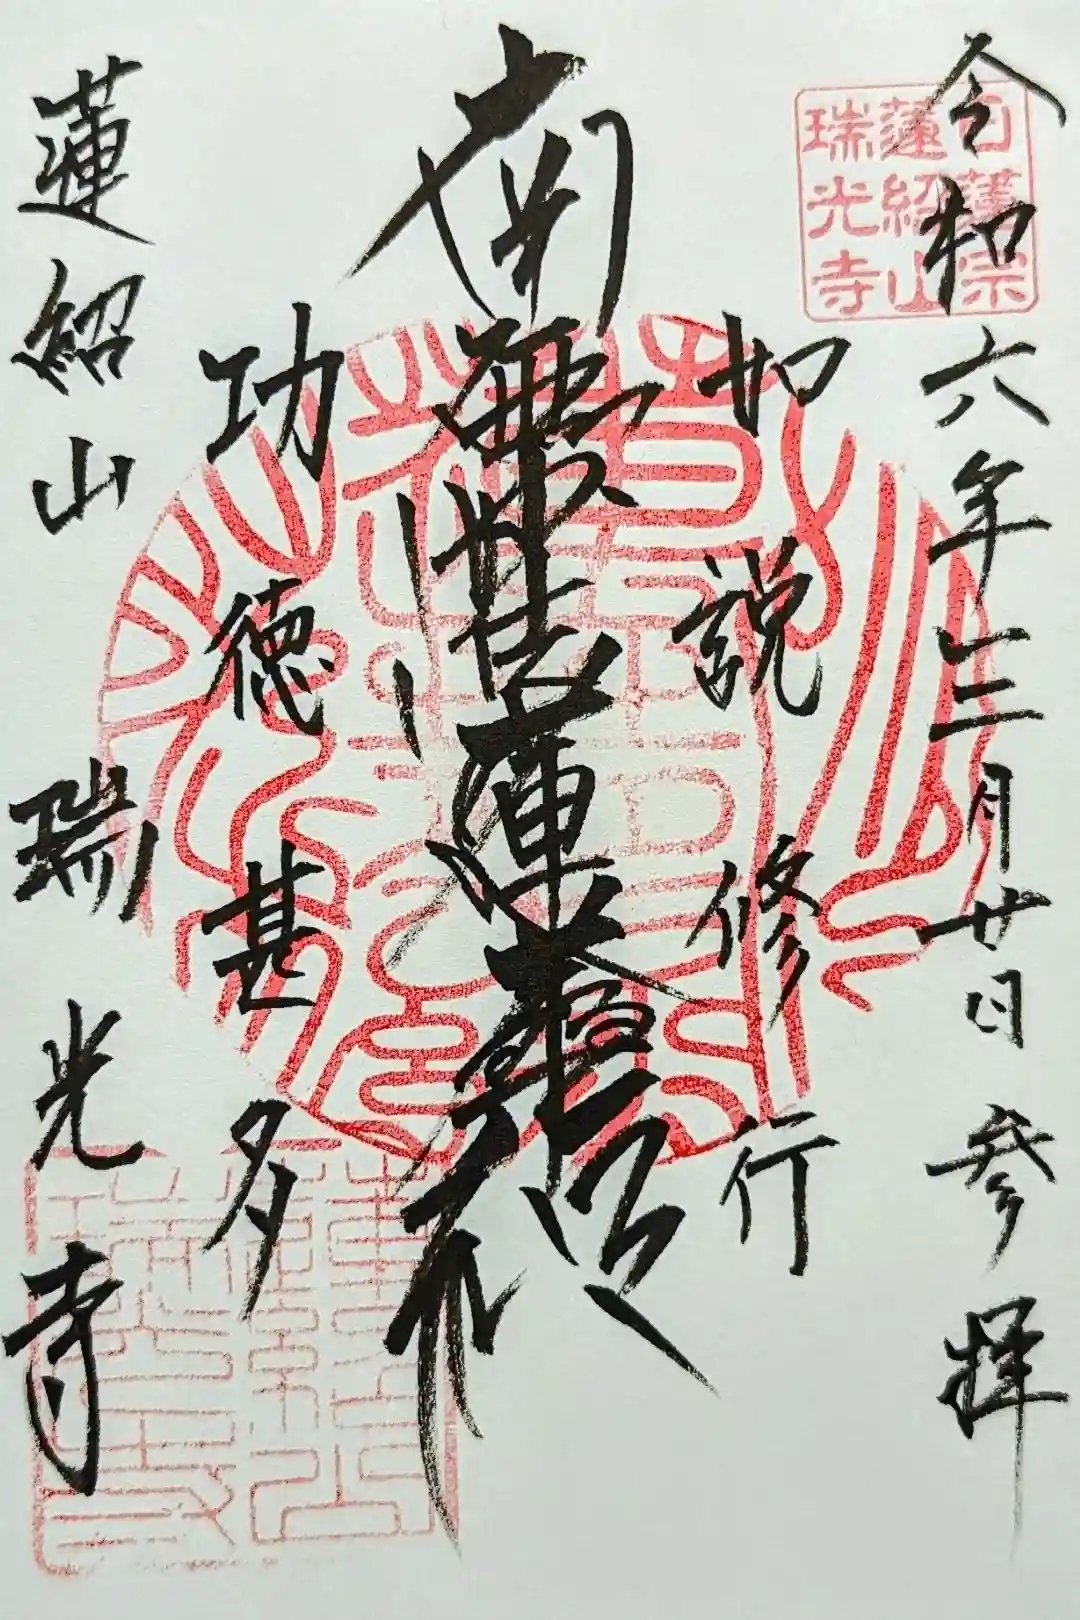 日蓮宗
蓮紹山
瑞光寺
令和六年三月廿日参拝
如説修行
南無妙法蓮華経
功徳甚多
蓮紹山 瑞光寺